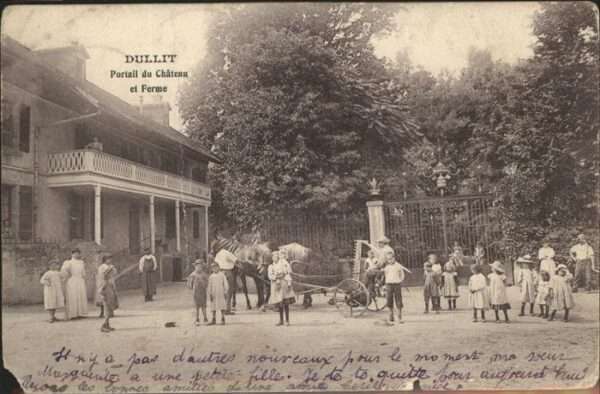 DULLIT
Portail du Château
et Ferme
Il n'y a pas d'autres nouveaux pour le moment ma sœur
Marguerite a une petite fille. Je te quitte pour aujourd'hui
les bonnes amitiés de